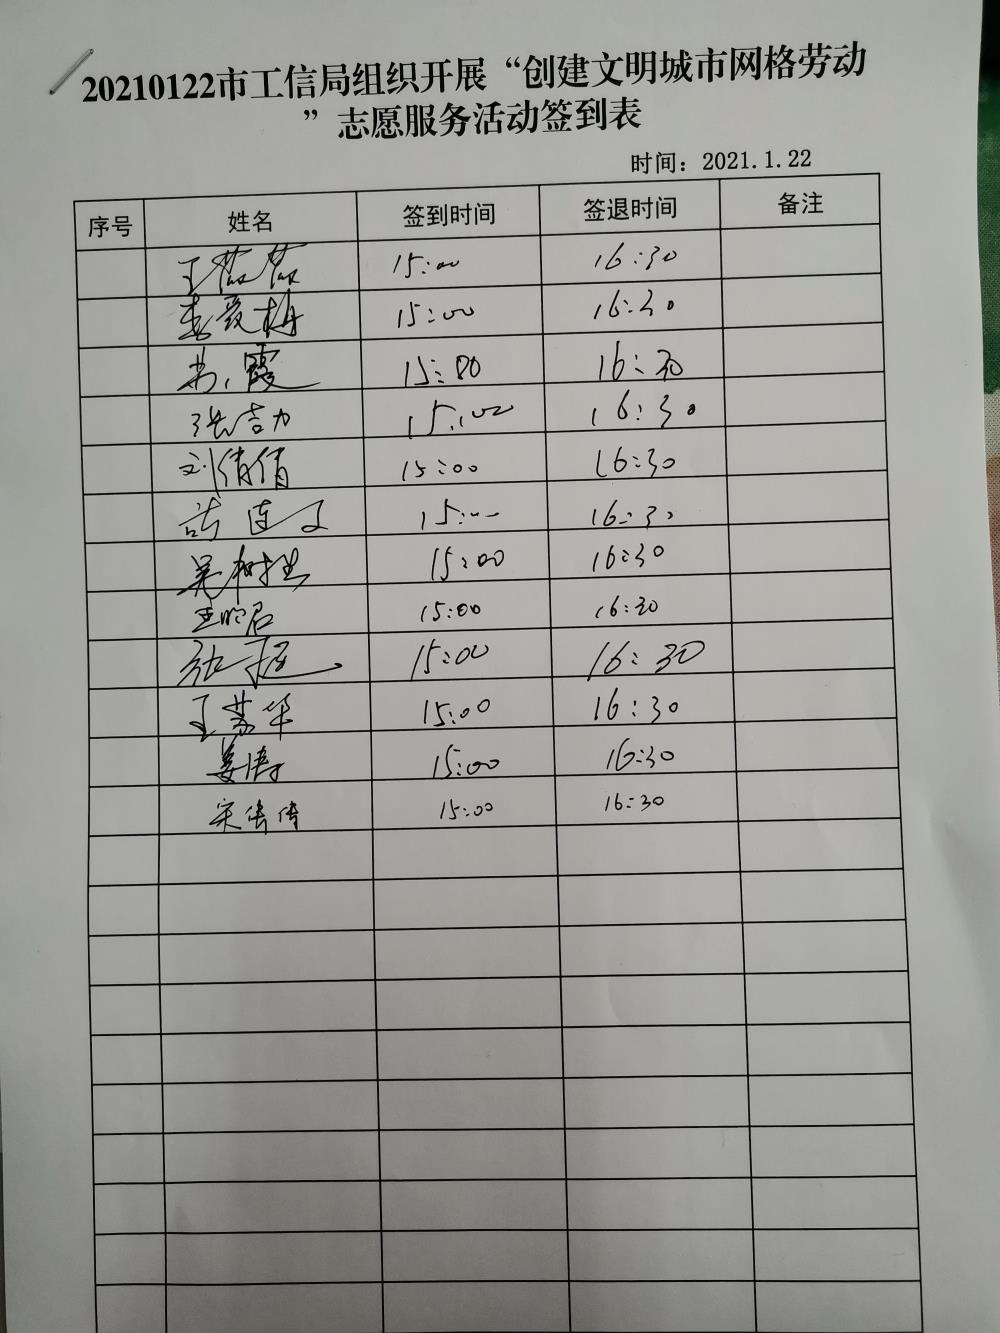 20210122市工信局组织开展“创建文明城市网格劳动
”志愿服务活动签到表
时间：2021.1.22
序号 姓名 签到时间 签退时间 备注
王茹茹 15:00 16:30
李爱梅 15:00 16:30
霞 15:00 16:30
张吉力 15:00 16:30
刘倩倩 15:00 16:30
连 15:00 16:30
吴树 15:00 16:30
王昭君 15:00 16:30
15:00 16:30
王苏华 15:00 16:30
姜涛 15:00 16:30
宋倩倩 15:00 16:30